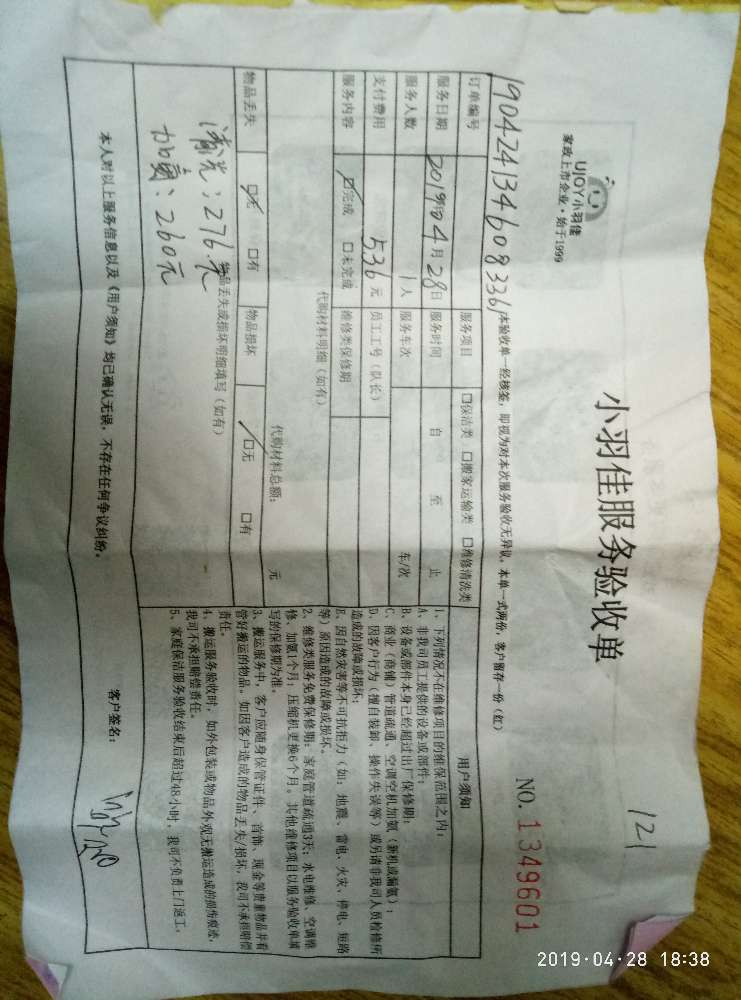 121
小羽佳服务验收单
NO. 1349601
UJOY小羽佳
家政上市企业·始于1999
体验收单一经核签，即视为对本次服务验收无异议。本单一式两份，客户留存一份（红）
订单编号 190424134608336
服务项目 口保洁类 口搬家运输类 口维修清洗类
服务日期 2019年04月28日 服务时间 自 至 止
服务人数 1人 服务车次 车/次
支付费用 536元 员工工号（队长）
服务内容 口完成 口未完成 维修类保修期
代购材料明细（如有）
代购材料总额： 元
物品丢失 口无 口有 物品损坏 口无 口有
物品丢失或损坏明细填写（如有）
清洗：276元
加氟：260元
用户须知
1、下列情况不在维修项目的维保范围之内：
A、非我司员工提供的设备或部件；
B、设备或部件本身已经超过出厂保修期；
C、商业（商铺）管道疏通、空调空机加氨（新机或漏氨）；
D、因客户行为（擅自装卸、操作失误等）或另请非我司人员检修所
造成的故障或损坏；
E、因自然灾害等不可抗拒力（如：地震、雷电、火灾、停电、短路
等）原因造成的故障或损坏。
2、维修类服务免费保修期：家庭管道疏通3天；水电维修、空调维
修、加氨1个月；压缩机更换6个月。其他维修项目以服务验收单填
写的保修期为准。
3、搬运服务中，客户应随身保管证件、首饰、现金等贵重物品并看
管好搬运的物品。如因客户造成的物品丢失/损坏，我司不承担赔偿
责任。
4、搬运服务验收时，如外包装或物品外观无搬运造成的损伤痕迹，
我司不承担赔偿责任。
5、家庭保洁服务验收结束后超过48小时，我司不负责上门返工。
本人对以上服务信息以及《用户须知》均已确认无误，不存在任何争议纠纷。
客户签名：
2019·04·28 18:38